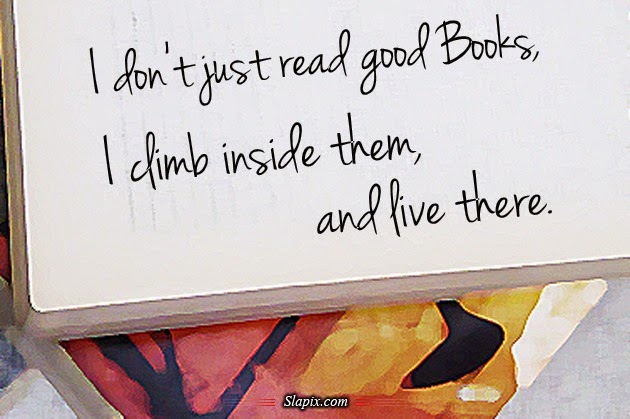 I don't just read good Books,
I climb inside them,
and live there.
Slapix.com